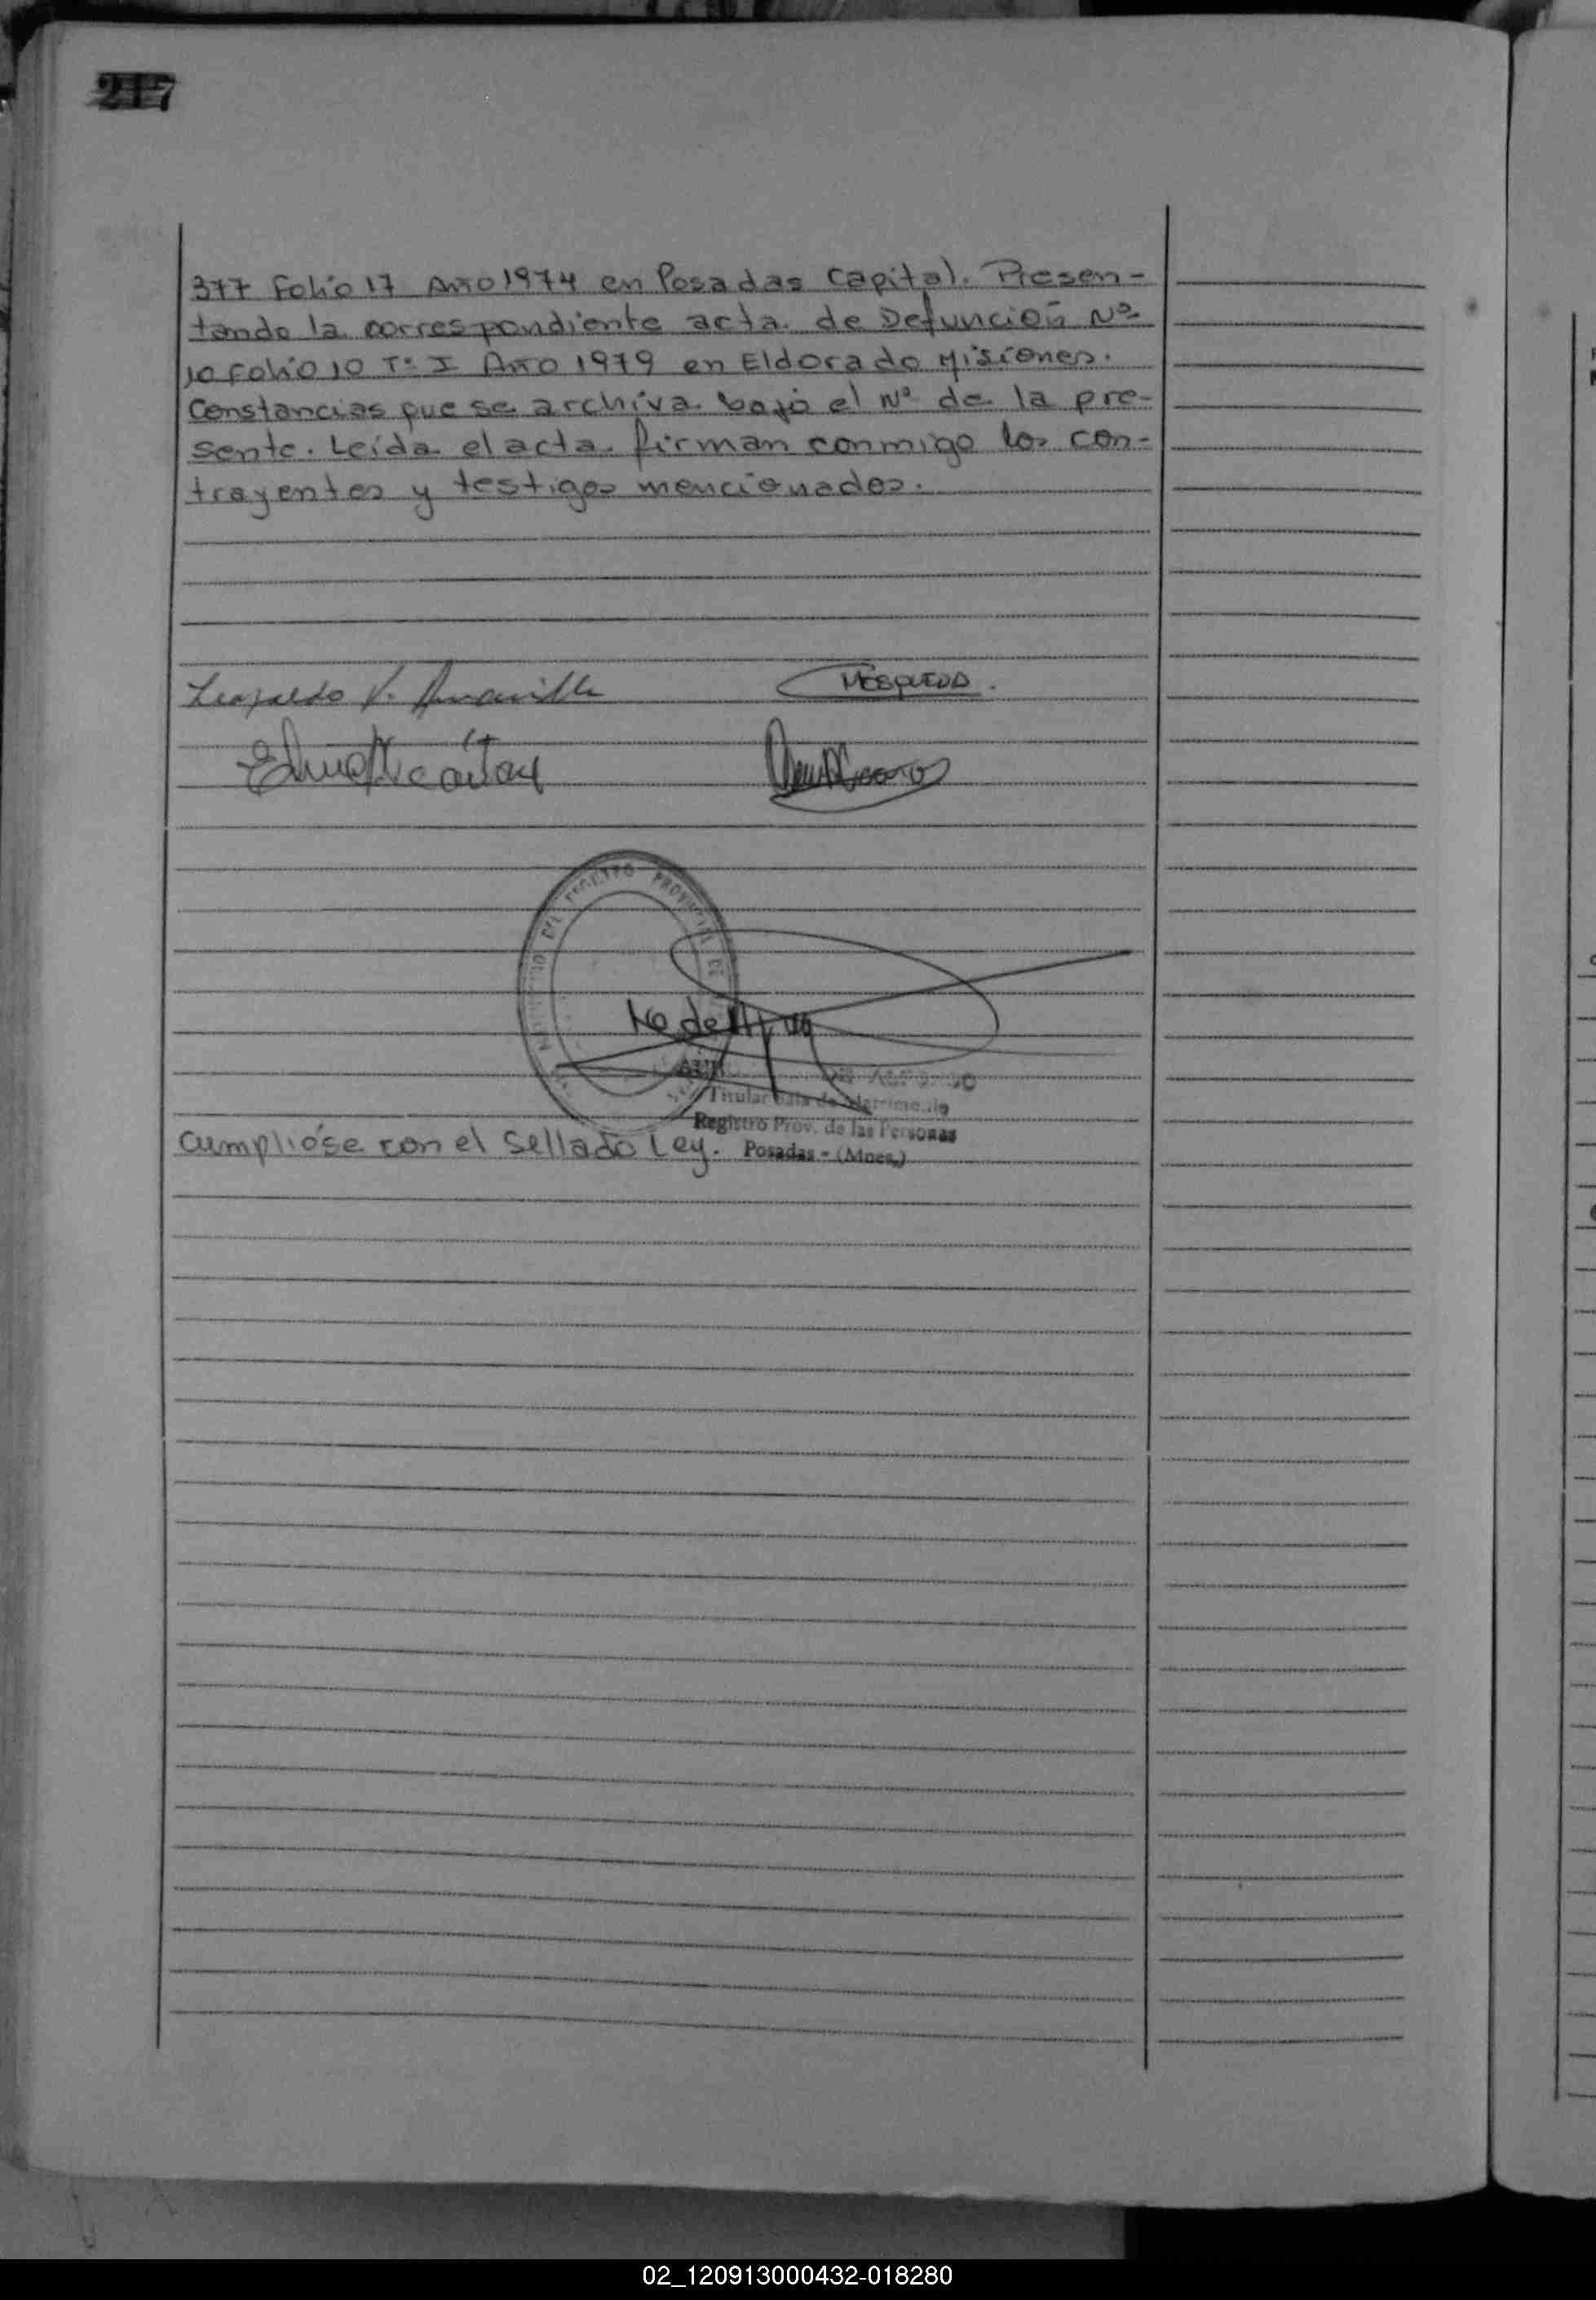 217
377 Folio 17 Año 1974 en Posadas Capital. Presen-
tando la correspondiente acta de Defunción Nº
10 Folio 10 Tº I Año 1979 en Eldorado Misiones.
Constancias que se archiva bajo el Nº de la pre-
sente. Leída el acta firman conmigo los con-
trayentes y testigos mencionados.
Leopoldo V.
DEL REGISTRO PROVINCIAL DE
Titular Sala de Matrimonio
Registro Prov. de las Personas
Cumplióse con el Sellado Ley. Posadas - (Mnes.)
02_120913000432-018280